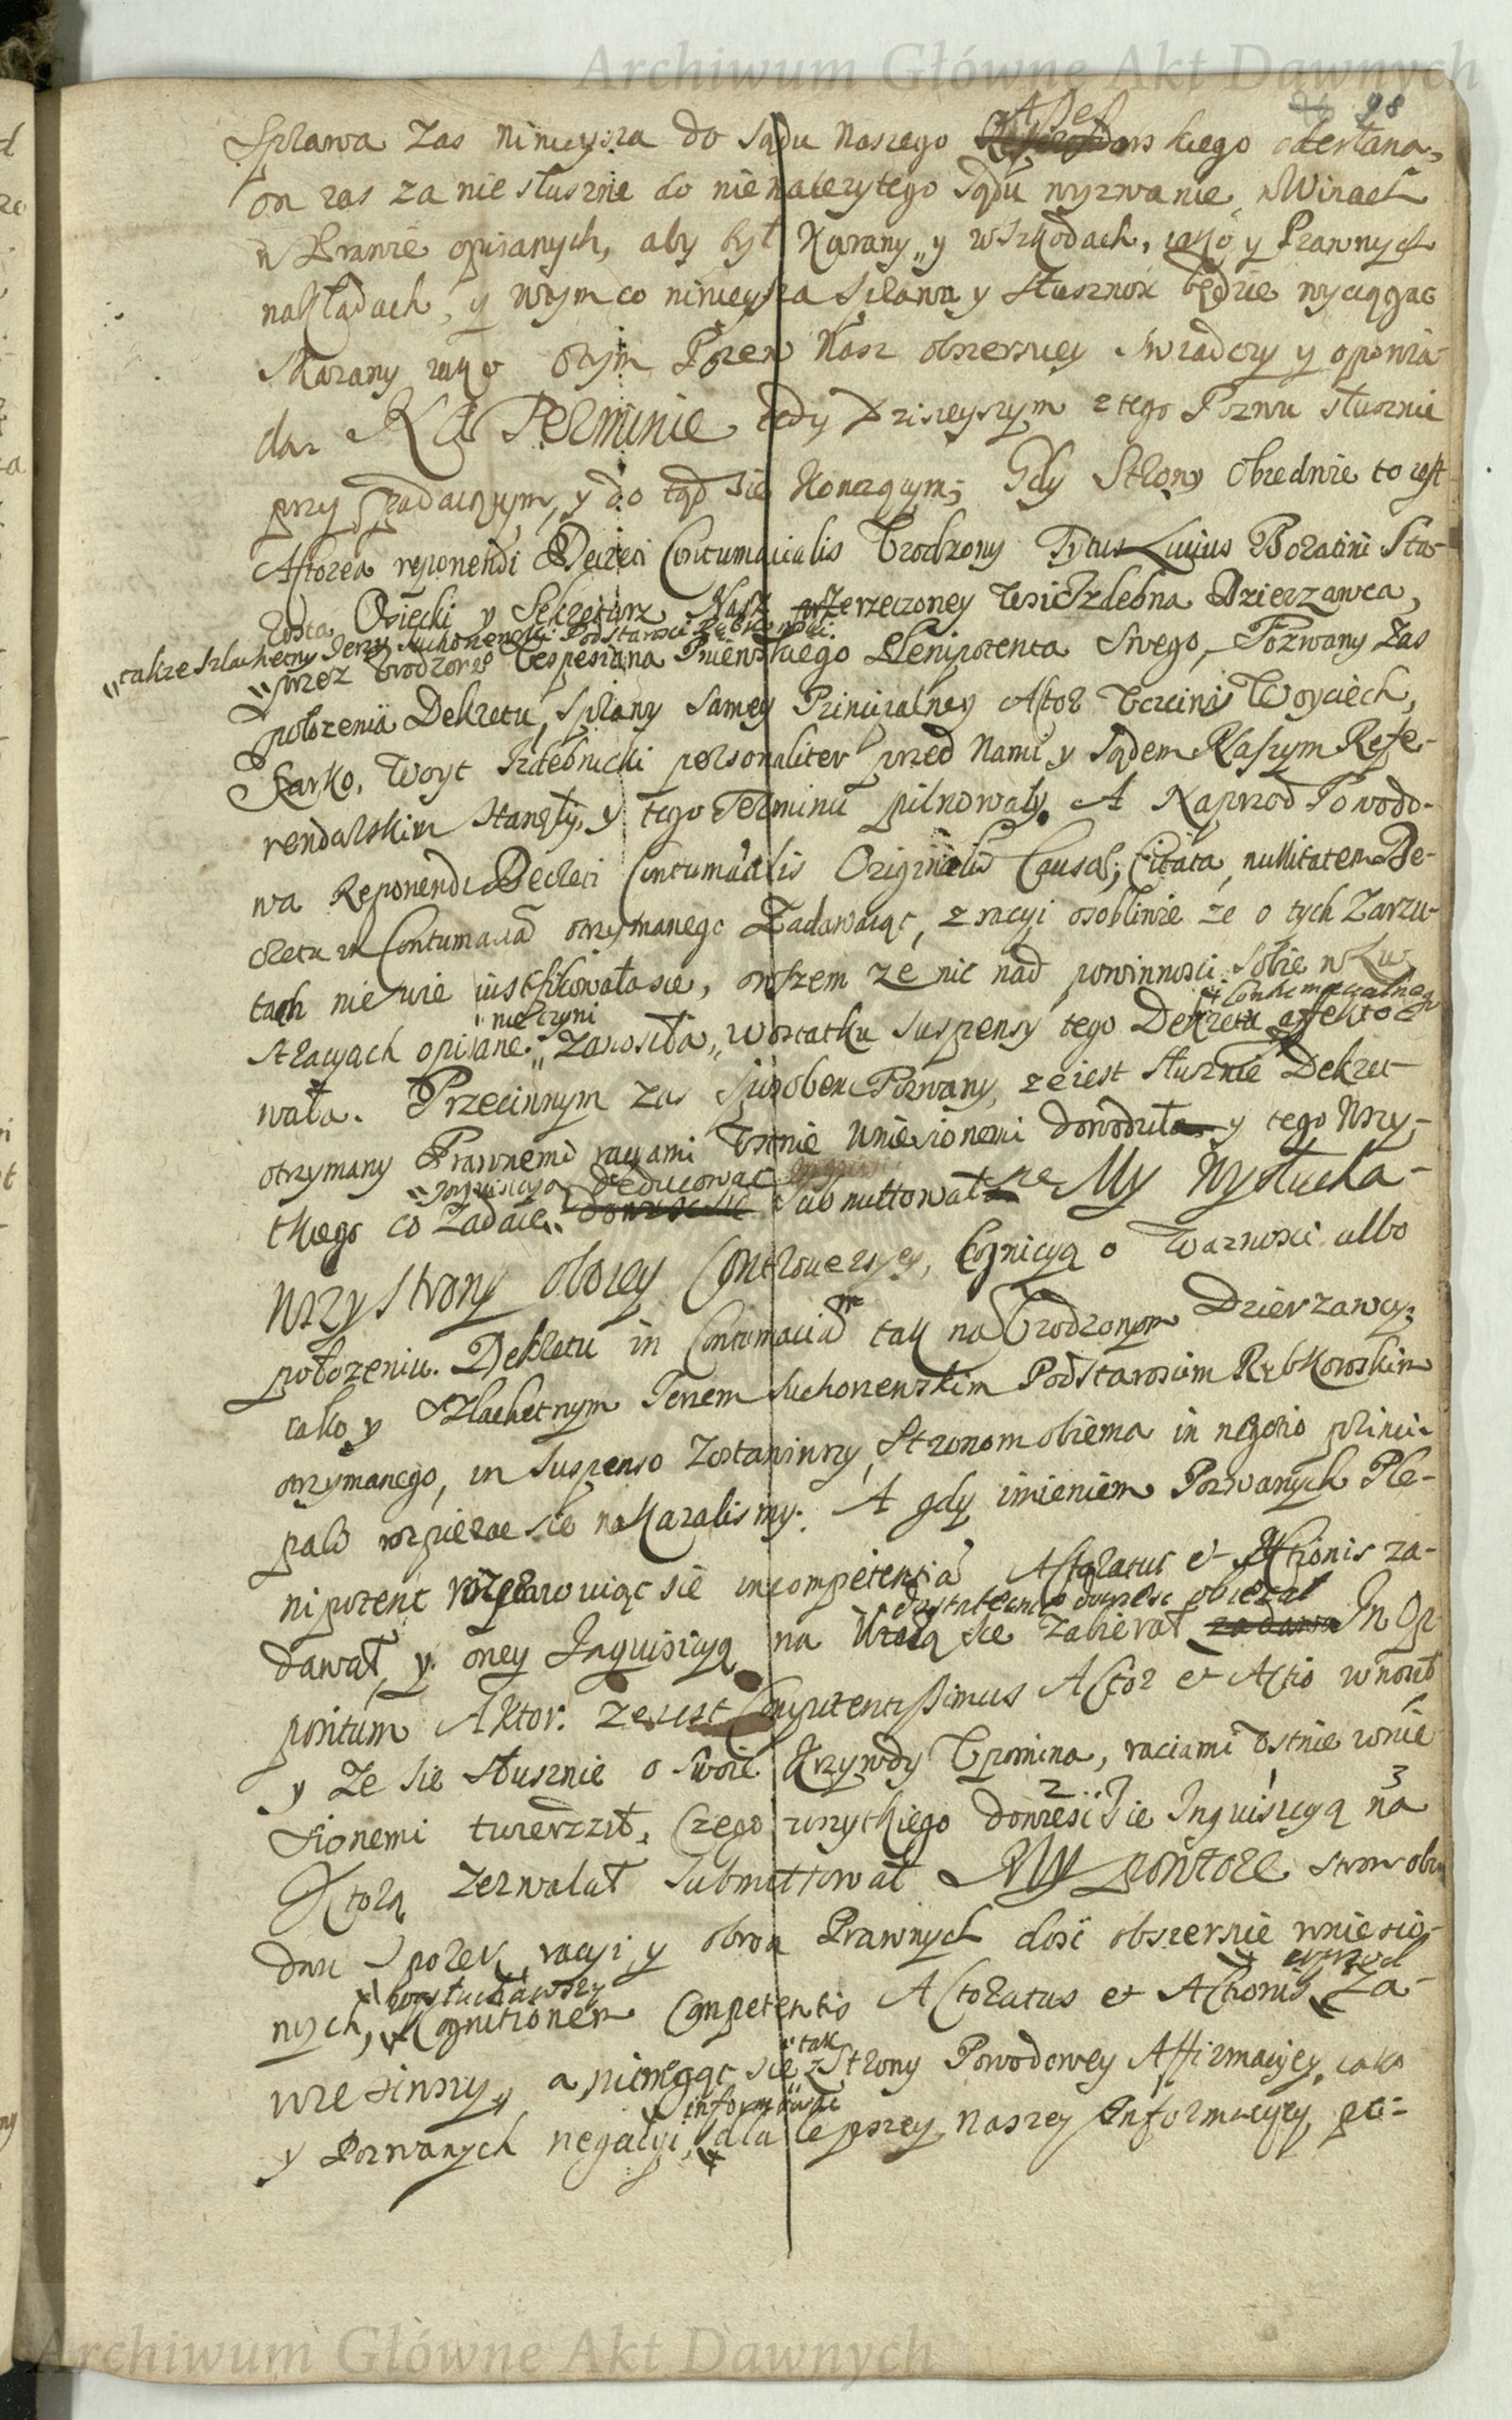 Archiwum Główne Akt Dawnych
98
Asses
Sprawa zas ninieysza do Sądu Naszego skiego odesłana,
on zas za niesłusznie do nienalezytego Sądu wyzwanie, w Winach
w Prawie opisanych, aby był karany, y w szkodach, iako y Prawnych
nakładach, y w tym co ninieysza Sprawa y słusznosc będzie wyciągac
skarany iako o tym Pozew Nasz obszerniey swiadczy y opowia-
da. Na Terminie tedy dzisieyszym z tego Pozwu słusznie
przypadaiącym, y do tąd się konczącym; Gdy Strony obiedwie to iest
Aktorea reponendi Decreti Contumacialis Urodzony Tytus Liuius Boratini Sta-
rosta Osiecki y Sekretarz Nasz przerzeczoney wsi Izdebna Dzierzawca,
"takze szlachetny Jerzy Suchorzewski Podstarosci Rębkowski
"przez Urodzonego Vespesiana Plenipotenta Swego, Pozwany zas
połozenia Dekretu, Sprawy samey Principalney Aktor Uczciwy Woyciech
Karko, Woyt Izdebnicki personaliter przed Nami y Sądem Naszym Refe-
rendarskim stanęły, y tego Terminu pilnowały. A Naprzod Powodo-
wa Reponendi Decreti Contumacialis Originalis Causae, Citata, nullitatem De-
cretu in Contumaciam otrzymanego Zadawaiąc, z racyi osobliwie ze o tych Zarzu-
tach nie wie iustifikowała sie, owszem ze nic nad powinnosci sobie w Lu-
stracyach opisane "nie czyni zanosiła, w ostatku suspensy tego Dekretu Contumacialnego affekto-
wała. Przeciwnym zas sposobem Pozwany, ze iest słusznie Dekret
otrzymany Prawnemi racyami Ustnie wniesionemi dowodził y tego wszy-
tkiego co zadaie "Inquisicyą deducowac submittował sie My wysłucha-
wszy strony oboiey Controuersyey, Cognicyą o waznosci albo
połozeniu Dekretu in Contumaciam tak na Urodzonym Dzierzawcy,
iako y Szlachetnym Jerzem Suchorzewskim Podstaroscim Rębkowskim
otrzymanego, in suspenso zostawiwszy, Stronom obiema in negotio princi-
pali rozpierac się nakazalismy. A gdy imieniem Pozwanych Ple-
nipotent rozprawuiąc się incompetentią Actoratus et Actionis za-
dawał, y oney Inquisicyą na którą się zabierał dostatecznie dowiesc obiecał In Op-
positum Aktor, ze iest Competentissimus Actor et Actio wnosił
y ze się słusznie o swoie krzywdy Upomina, raciami Ustnie wnie-
sionemi twierdził, czego wszytkiego 2 dowiesc się 1 Inquisicyą 3 na
Ktorą zezwalał submittował My powtore stron obu
dwu sporek, racyi y obron Prawnych dosc obszernie wniesio-
nych, wysłuchawszy Cognitionem Competentis Actoratus et Actionis wprzod za-
wiesiwszy, a niemogąc się "tak z Strony Powodowey Affirmacyey, iako
y Pozwanych negacyi, informowac dla lepszey naszey Informacyey, po-
Archiwum Główne Akt Dawnych